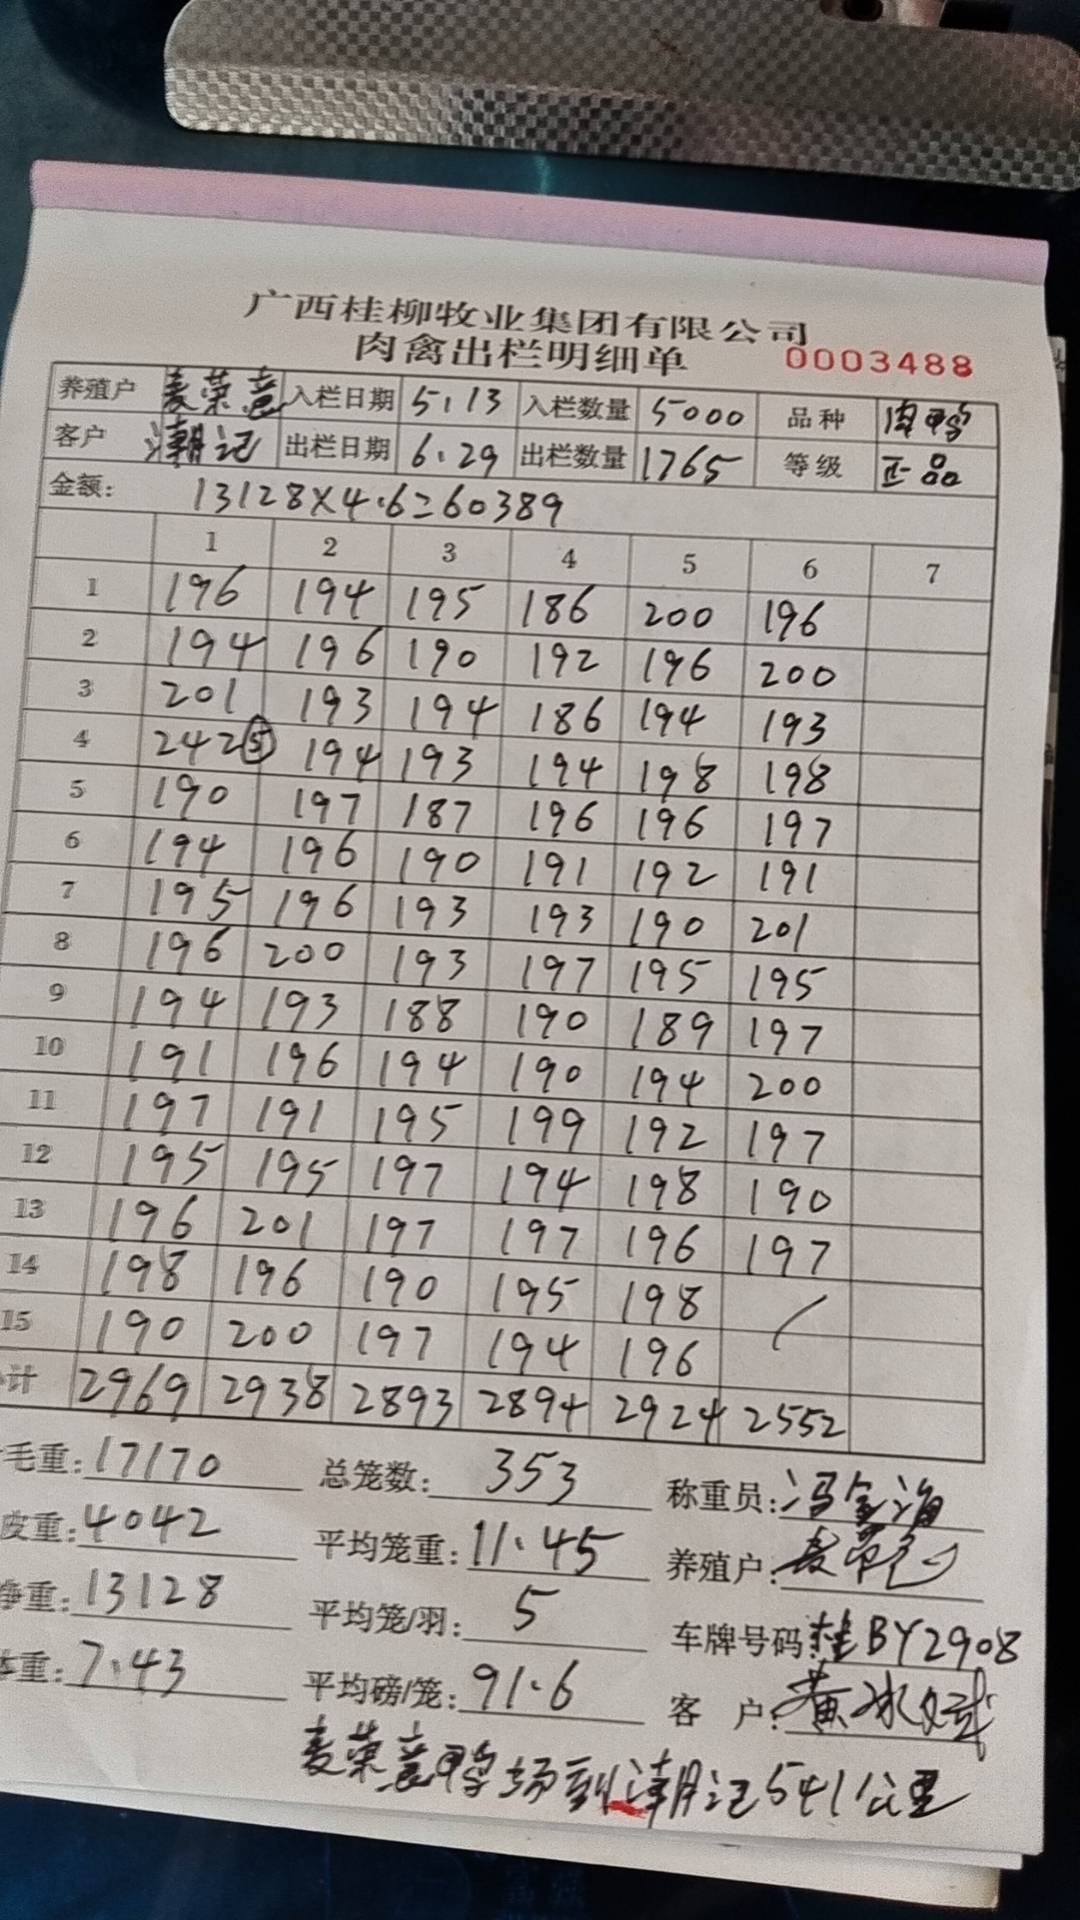 广西桂柳牧业集团有限公司
肉禽出栏明细单 0003488
养殖户 麦荣意 入栏日期 5.13 入栏数量 5000 品种 肉鸭
客户 潮记 出栏日期 6.29 出栏数量 1765 等级 正品
金额: 13128×4.6=60389
1 2 3 4 5 6 7
1 196 194 195 186 200 196
2 194 196 190 192 196 200
3 201 193 194 186 194 193
4 242⑤ 194 193 194 198 198
5 190 197 187 196 196 197
6 194 196 190 191 192 191
7 195 196 193 193 190 201
8 196 200 193 197 195 195
9 194 193 188 190 189 197
10 191 196 194 190 194 200
11 197 191 195 199 192 197
12 195 195 197 194 198 190
13 196 201 197 197 196 197
14 198 196 190 195 198 /
15 190 200 197 194 196
计 2969 2938 2893 2894 2924 2552
毛重: 17170 总笼数: 353 称重员: 冯金海
皮重: 4042 平均笼重: 11.45 养殖户: 麦荣意
净重: 13128 平均笼/羽: 5 车牌号码 桂BY2908
重: 7.43 平均磅/笼: 91.6 客户: 黄冰
麦荣意鸭场到潮记541公里